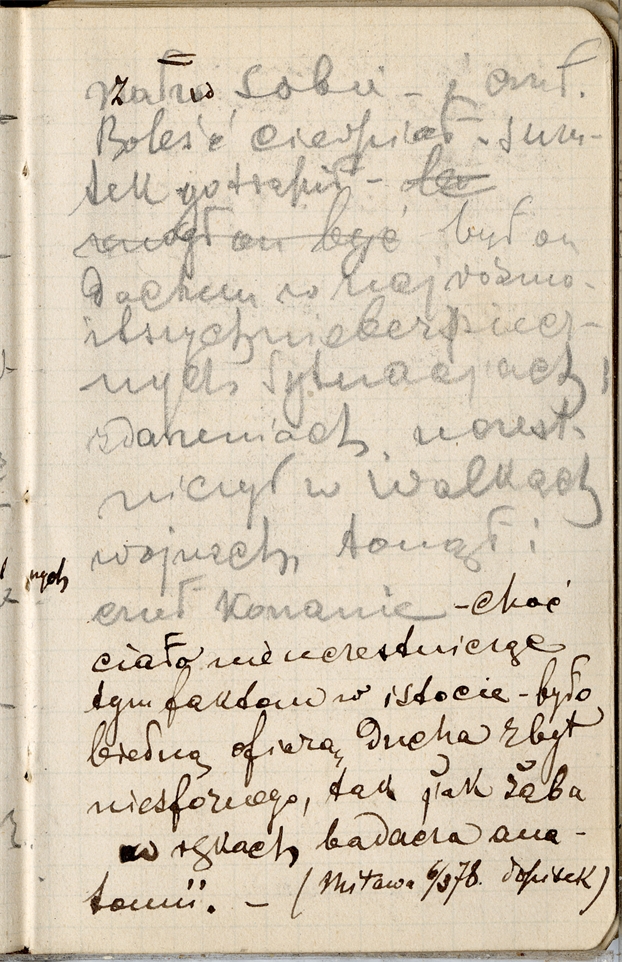 sobie – i czuł.
Boleść cierpiał. Smu-
tek potrafił – ~~to~~
~~mógł on być~~ był on
Duchem w najrozma-
itszych niebezpiecz-
nych sytuacjach,
zdarzeniach, uczest-
niczył w walkach
wojnach, tonął i
czuł konanie – choć
ciało nie uczestnicząc
tym faktom w istocie – było
biedną ofiarą Ducha zbyt
niesfornego, tak jak żaba
w rękach badacza ana-
tomii. – (Mitawa 6/3 78. dopisek)
nych